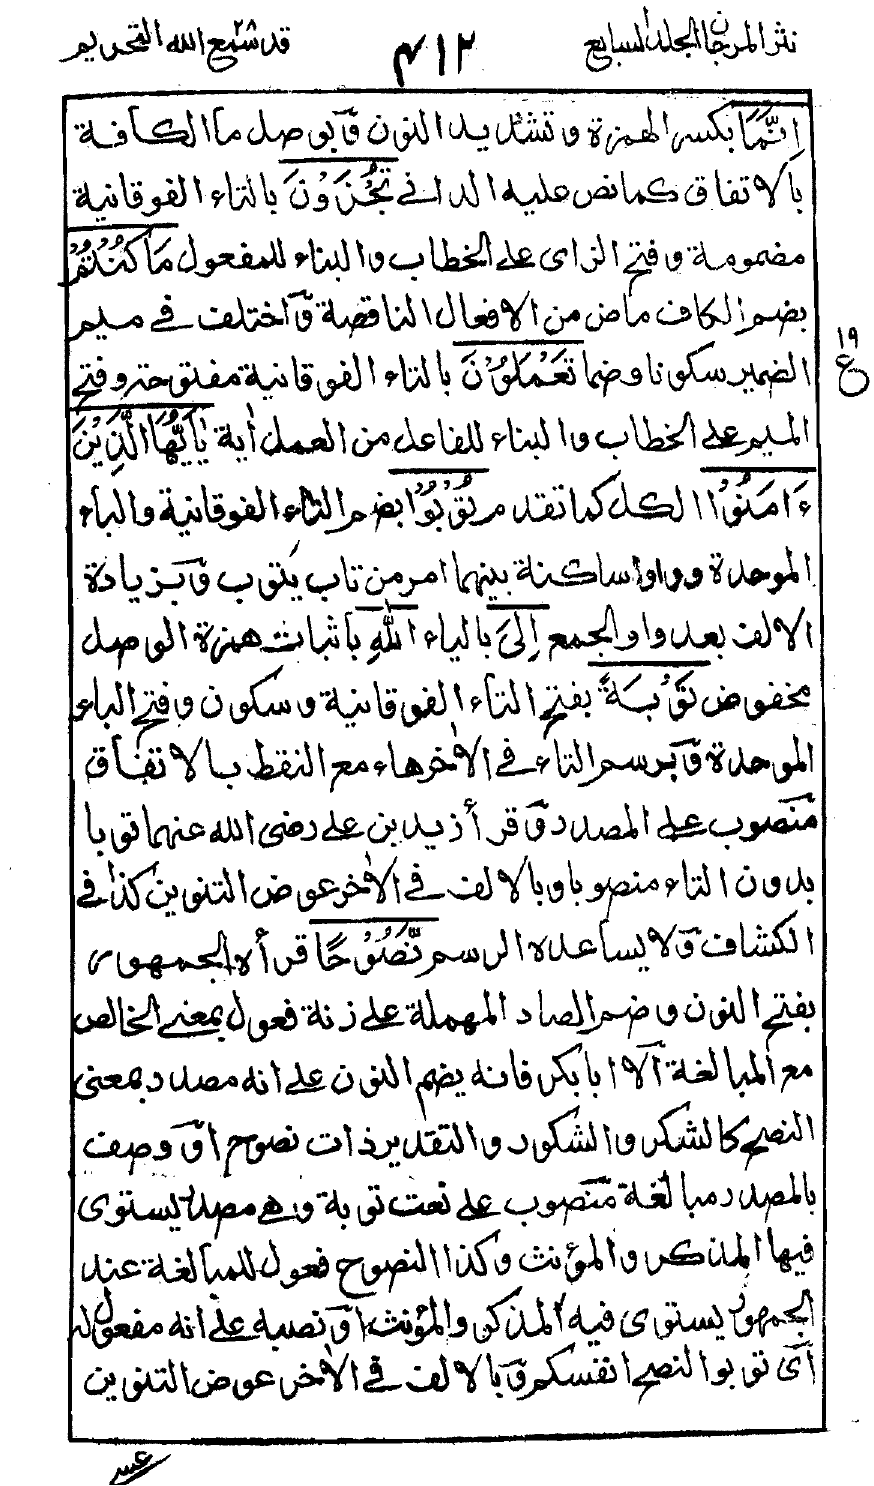 نثر المرجان المجلد السابع
٤١٢
قد شمع الله ٢٨ التحريم
اِنَّمَا بكسر الهمزة وتشديد النون وبوصل ما الكافة
بالاتفاق كما نص عليه الداني تُجْزَوْنَ بالتاء الفوقانية
مضمومة وفتح الزاى على الخطاب والبناء للمفعول مَا كُنْتُمْ
بضم الكاف ماض من الافعال الناقصة واختلف في ميم
الضمير سكونا وضما تَعْمَلُوْنَ بالتاء الفوقانية مفتوحة وفتح
١٩
ع
الميم على الخطاب والبناء للفاعل من العمل اٰية يٰاَيُّهَا الَّذِيْنَ
ءَامَنُوْا الكل كما تقدم تُوْبُوْا بضم التاء الفوقانية والباء
الموحدة وواوا ساكنة بينهما امر من تاب يتوب وبزيادة
الالف بعد واو الجمع اِلىَ بالياء اللّٰهِ باثبات همزة الوصل
مخفوض تَوْبَةً بفتح التاء الفوقانية وسكون وفتح الباء
الموحدة وبرسم التاء في الاٰخر هاء مع النقط بالاتفاق
منصوب على المصدر وقرأ زيد بن على رضى الله عنهما توبا
بدون التاء منصوبا وبالالف في الاٰخر عوض التنوين كذا في
الكشاف ولا يساعده الرسم نَّصُوْحًا قرأه الجمهور
بفتح النون وضم الصاد المهملة على زنة فعول بمعنى الخالص
مع المبالغة الا ابا بكر فانه يضم النون على انه مصدر بمعنى
النصح كالشكر والشكور والتقدير ذات نصوح او وصف
بالمصدر مبالغة منصوب على نعت توبة وهي مصدر يستوى
فيها المذكر والمؤنث وكذا النصوح فعول للمبالغة عند
الجمهور يستوى فيه المذكر والمؤنث او نصبه على انه مفعول له
اى توبوا لنصح انفسكم وبالالف في الاٰخر عوض التنوين